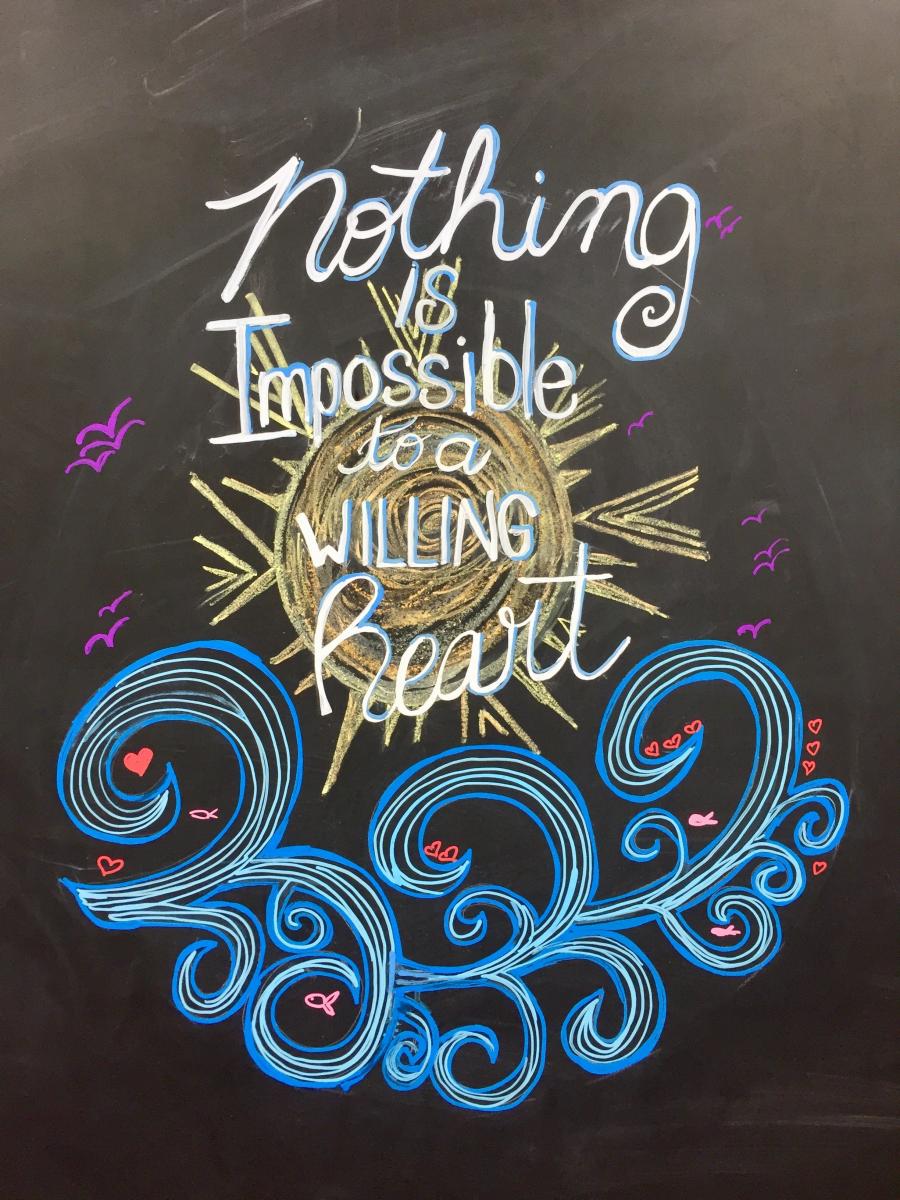 Nothing
is
Impossible
to a
WILLING
heart